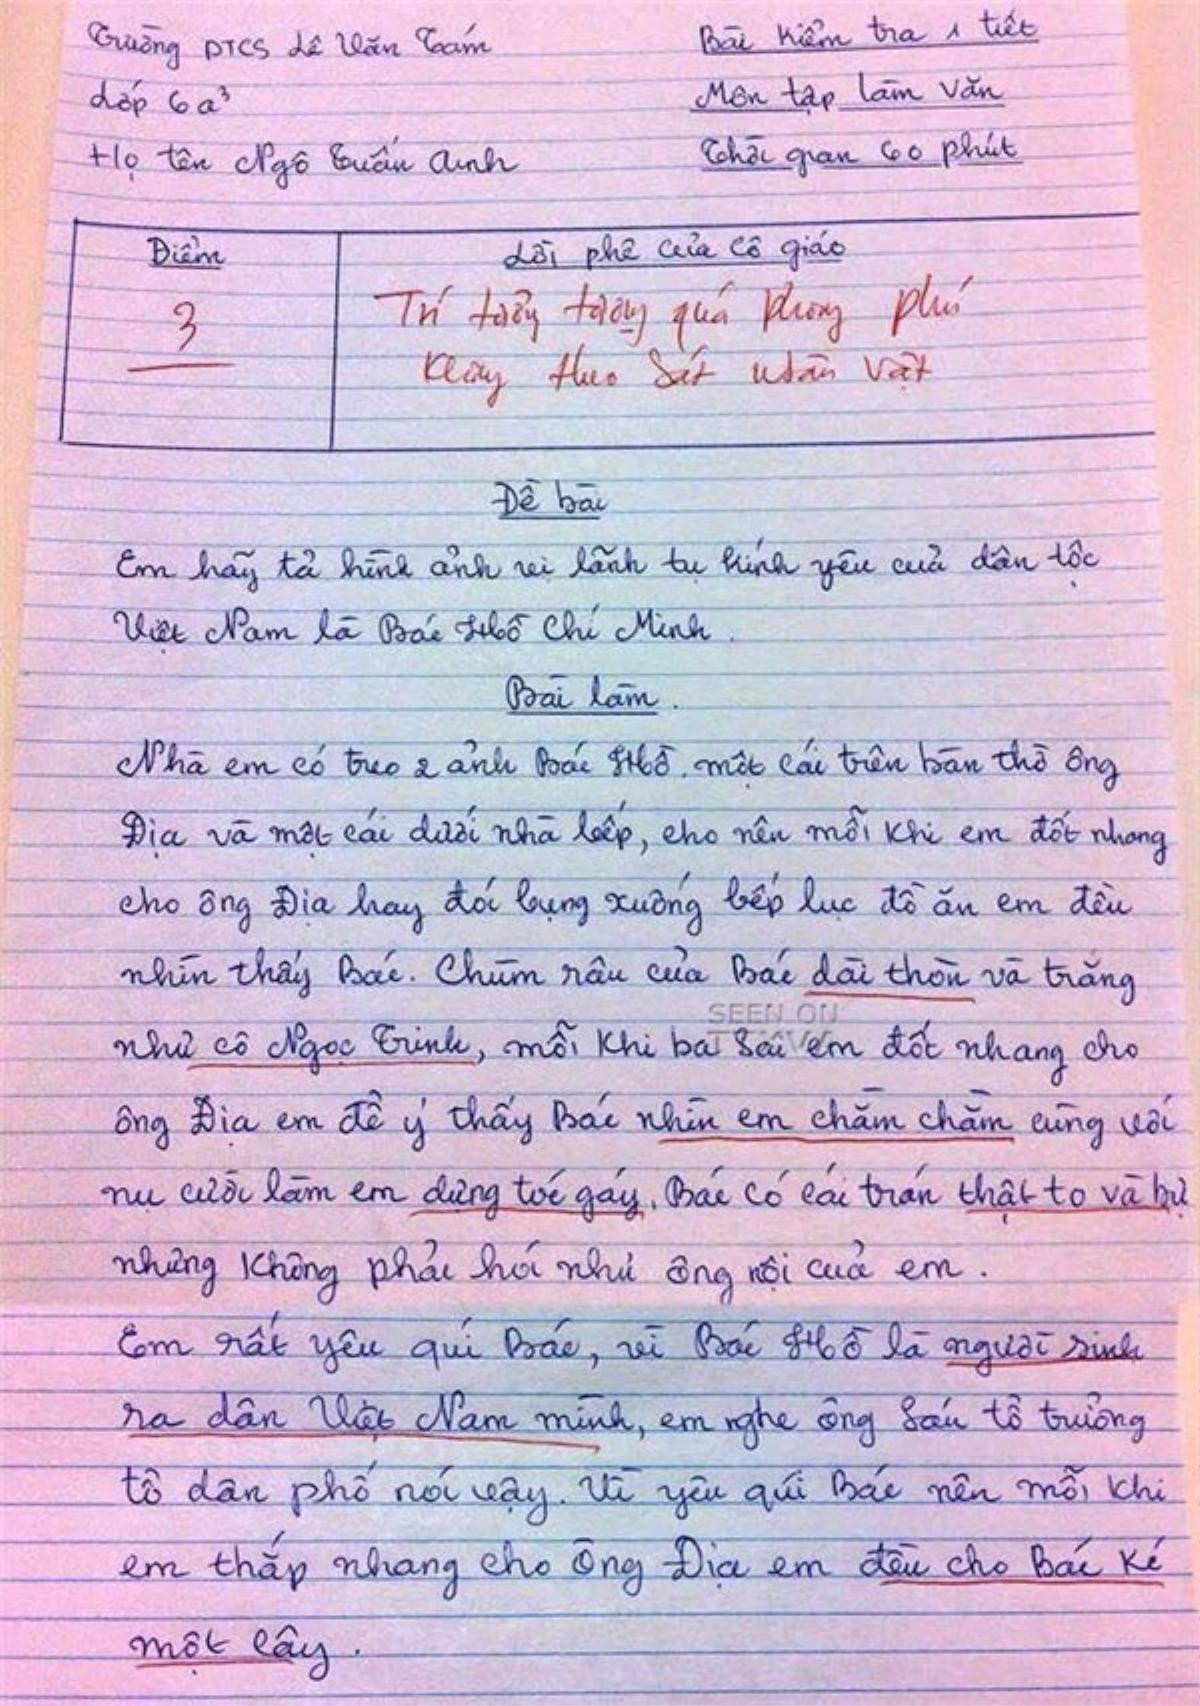 Trường PTCS Lê Văn Tám
Bài kiểm tra 1 tiết
Lớp 6a³
Môn tập làm văn
Họ tên Ngô Tuấn Anh
Thời gian 60 phút
Điểm
Lời phê của cô giáo
3
Trí tưởng tượng quá phong phú
Không theo sát nhân vật
Đề bài
Em hãy tả hình ảnh vị lãnh tụ kính yêu cuả dân tộc
Việt Nam là Bác Hồ Chí Minh.
Bài làm.
Nhà em có treo 2 ảnh Bác Hồ. một cái trên bàn thờ ông
Địa và một cái dưới nhà bếp, cho nên mỗi khi em đốt nhang
cho ông Địa hay đói bụng xuống bếp lục đồ ăn em đều
nhìn thấy Bác. Chùm râu của Bác dài thòn và trắng
như cô Ngọc Trinh, mỗi khi ba sai em đốt nhang cho
SEEN ON
ông Địa em để ý thấy Bác nhìn em chằm chằm cùng với
nụ cười làm em dựng toé gáy. Bác có cái trán thật to và bự
nhưng không phải hói như ông nội cuả em.
Em rất yêu quí Bác, vì Bác Hồ là người sinh
ra dân Việt Nam mình, em nghe ông Sáu tổ trưởng
tổ dân phố nói vậy. Vì yêu qúi Bác nên mỗi khi
em thắp nhang cho Ông Địa em đều cho Bác ké
một cây.